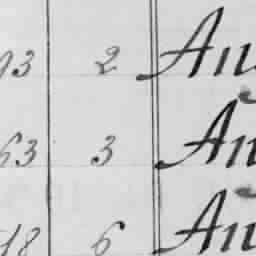 93 2 An
63 3 An
18 6 An